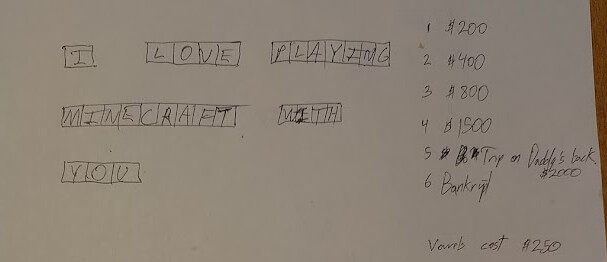 I LOVE PLAYING
MINECRAFT WITH
YOU
1 $200
2 $400
3 $800
4 $1500
5 Trip on Daddy's back
$2000
6 Bankrupt
Vowels cost $250